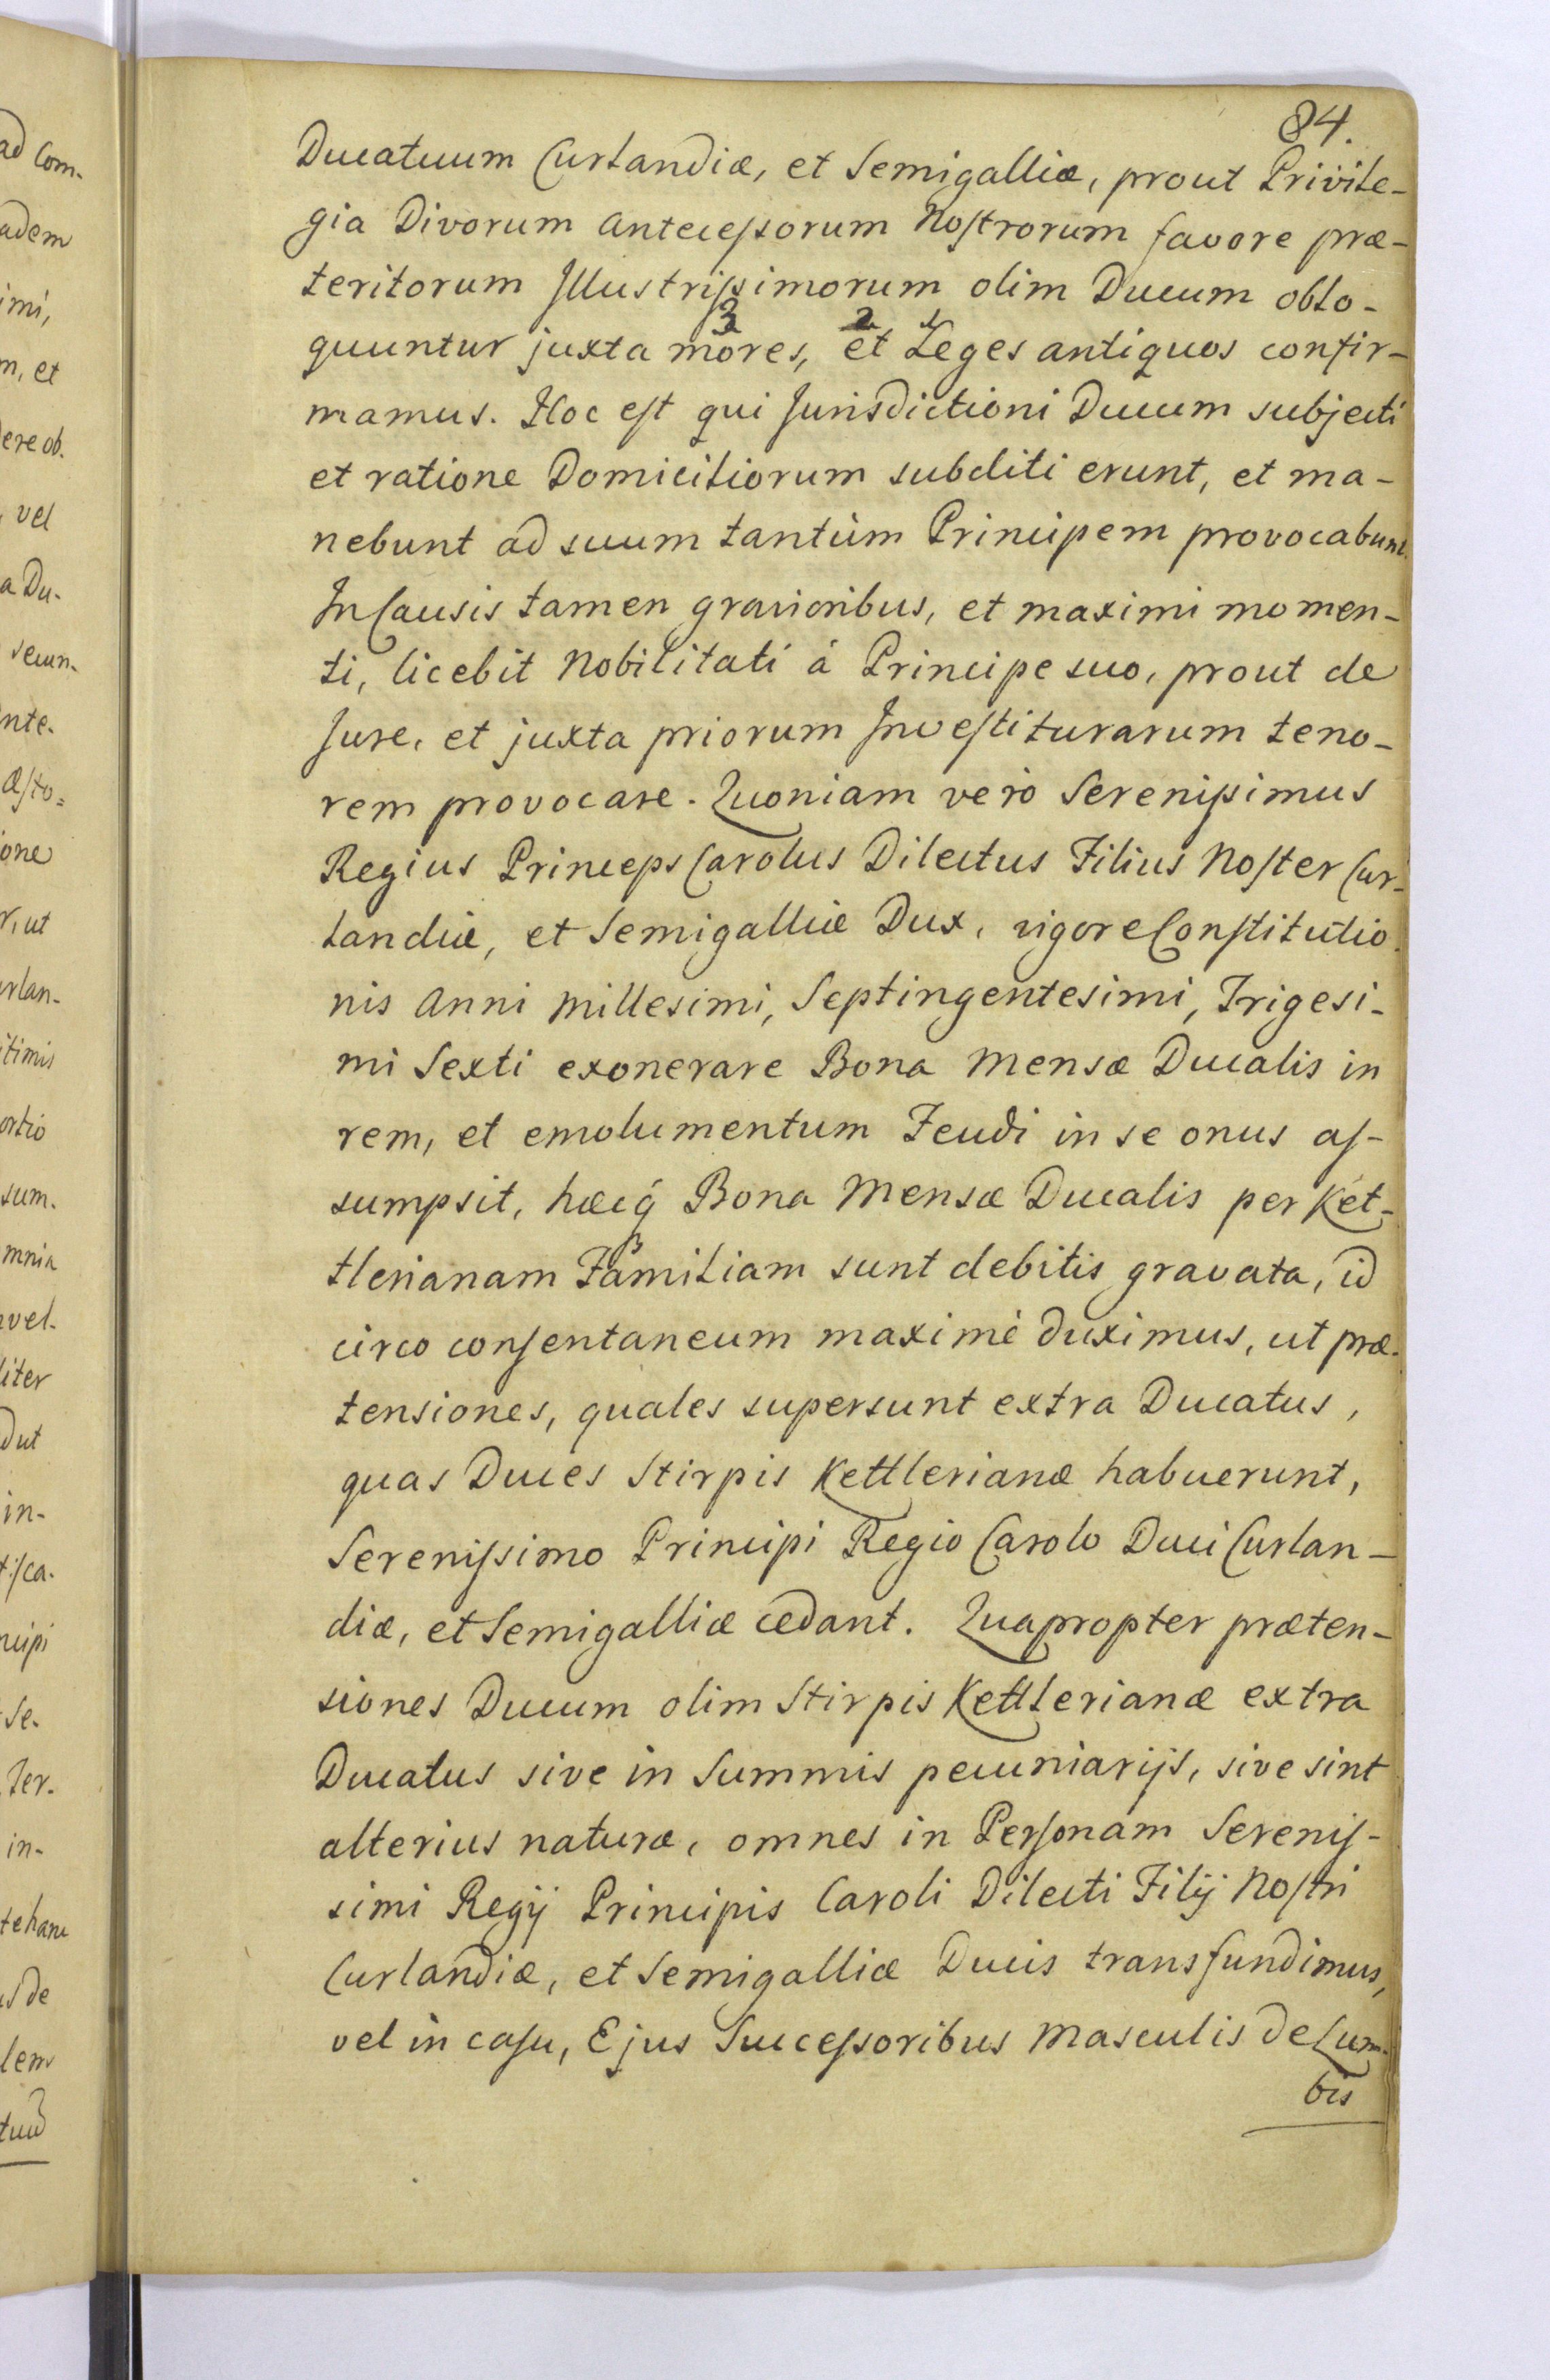 84.
Ducatuum Curlandiæ, et Semigalliæ, prout Privile-
gia Divorum Antecessorum Nostrorum favore præ-
teritorum Illustrissimorum olim Ducum oblo-
3 2 1
quuntur juxta mores, et Leges antiquos confir-
mamus. Hoc est qui Jurisdictioni Ducum subjecti
et ratione Domiciliorum subditi erunt, et ma-
nebunt ad suum tantùm Principem provocabunt.
In Causis tamen gravioribus, et maximi momen-
ti, licebit Nobilitati à Principe suo, prout de
Jure, et juxta priorum Investiturarum teno-
rem provocare. Quoniam verò Serenissimus
Regius Princeps Carolus Dilectus Filius Noster Cur-
landiæ, et Semigalliæ Dux, vigore Constitutio-
nis Anni Millesimi, Septingentesimi, Trigesi-
mi Sexti exonerare Bona Mensæ Ducalis in
rem, et emolumentum Feudi in se onus as-
sumpsit, hæcq́ Bona Mensæ Ducalis per Ket-
tlerianam Familiam sunt debitis gravata, id
circo consentaneum maximè duximus, ut præ-
tensiones, quales supersunt extra Ducatus,
quas Duces Stirpis Kettlerianæ habuerunt,
Serenissimo Principi Regio Carolo Duci Curlan-
diæ, et Semigalliæ cedant. Quapropter præten-
siones Ducum olim Stirpis Kettlerianæ extra
Ducatus sive in Summis pecuniarijs, sive sint
alterius naturæ, omnes in Personam Serenis-
simi Regij Principis Caroli Dilecti Filij Nostri
Curlandiæ, et Semigalliæ Ducis transfundimus,
vel in casu, Ejus Successoribus Masculis de Lum-
bis
ad Com-
adem
imi,
m, et
dere ob.
vel
a Du-
secun-
nte-
æsto=
ione
r, ut
urlan-
itimis
ortio
sum.
mnia
vel-
liter
dut
in-
tifca-
ncipi
Se-
Ter-
in-
te hanc
us de
lem
tuu